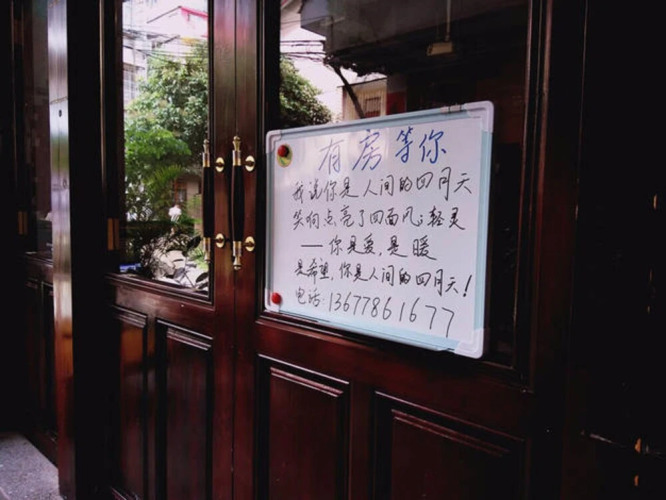 有房等你
我说你是人间的四月天
笑响点亮了四面风；轻灵
——你是爱，是暖
是希望，你是人间的四月天！
电话：13677861677